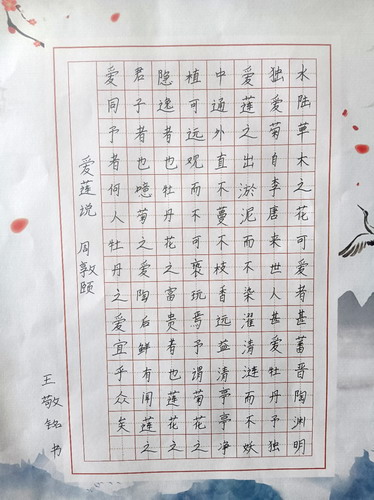 水陆草木之花可爱者甚蕃晋陶渊明
独爱菊自李唐来世人甚爱牡丹予独
爱莲之出淤泥而不染濯清涟而不妖
中通外直不蔓不枝香远益清亭亭净
植可远观而不可亵玩焉予谓菊花之
隐逸者也牡丹花之富贵者也莲花之
君子者也噫菊之爱陶后鲜有闻莲之
爱同予者何人牡丹之爱宜乎众矣
爱莲说 周敦颐
王敬 书